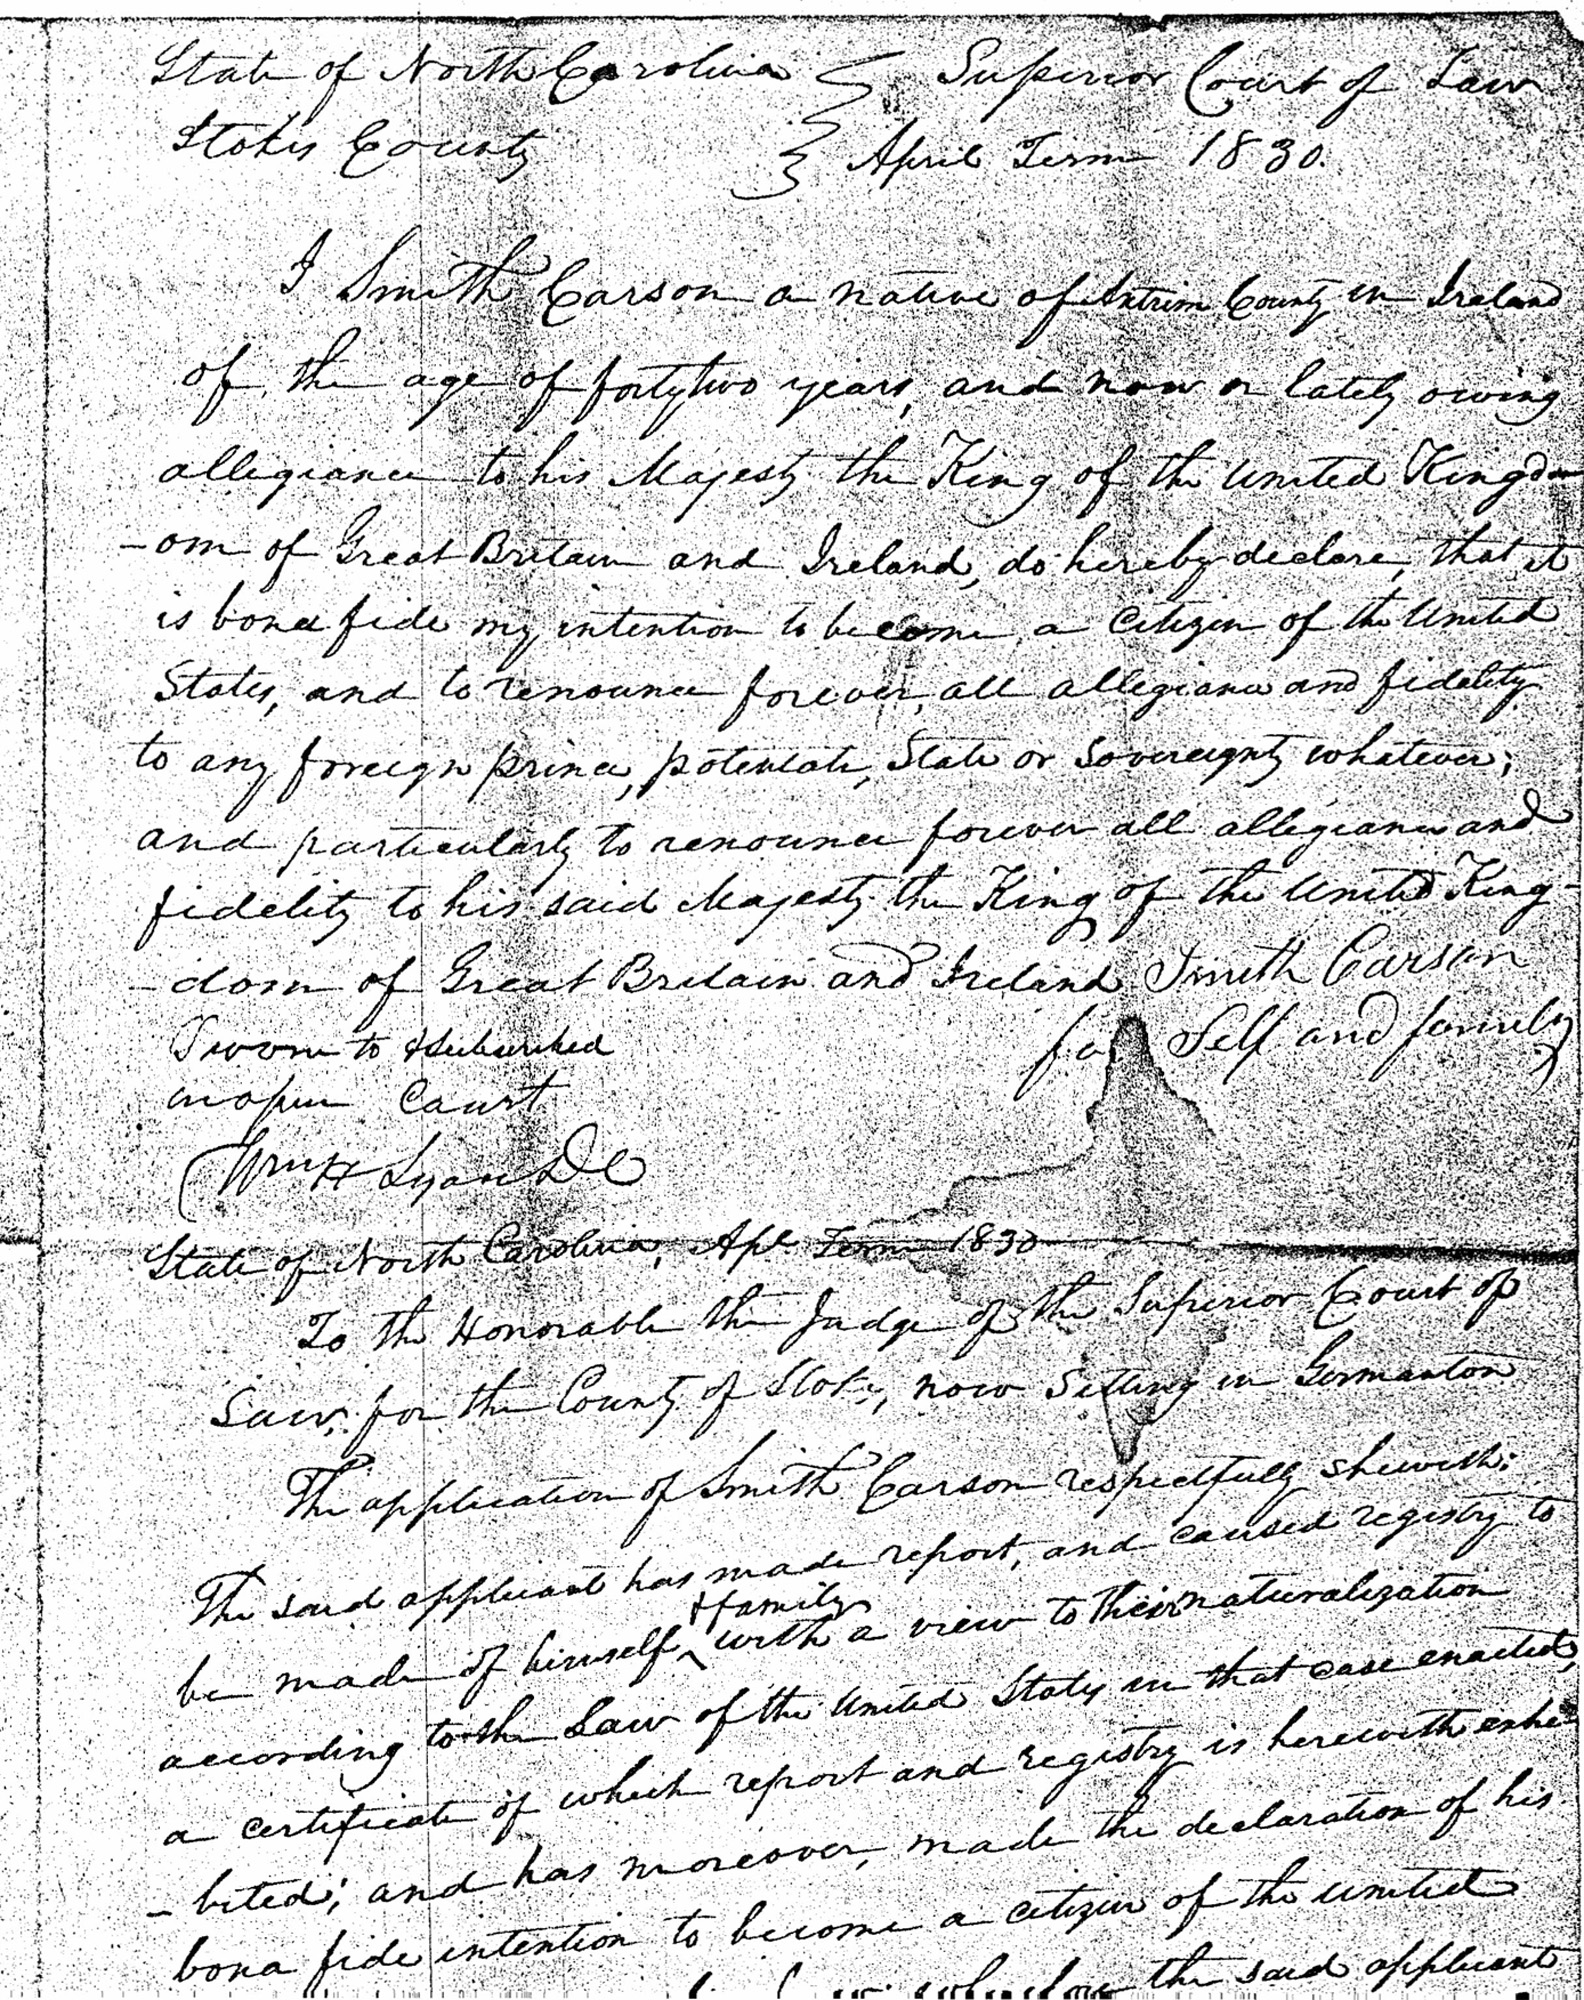 State of North Carolina } Superior Court of Law
Stokes County } April Term 1830.
I Smith Carson a native of Antrim County in Ireland
of the age of forty two years, and now or lately owing
allegiance to his Majesty the King of the United Kingdom
-om of Great Britain and Ireland, do hereby declare, that it
is bona fide my intention to become a citizen of the United
States, and to renounce forever, all allegiance and fidelity
to any foreign prince, potentate, State or Sovereignty whatever;
and particularly to renounce forever all allegiance and
fidelity to his said Majesty the King of the United King-
-dom of Great Britain and Ireland Smith Carson
for Self and family
Sworn to & subscribed
in open Court
Wm H Lyon DC
State of North Carolina, Apl Term 1830
To the Honorable the Judge of the Superior Court of
Law, for the County of Stokes, now Sitting in Germanton
The application of Smith Carson respectfully sheweth:
The said applicant has made report, and caused registry to
& family
be made of himself ‸ with a view to their naturalization
according to the Law of the United States in that case enacted,
a certificate of which report and registry is herewith exhi-
- bited; and has moreover, made the declaration of his
bona fide intention to become a citizen of the United
the said applicant